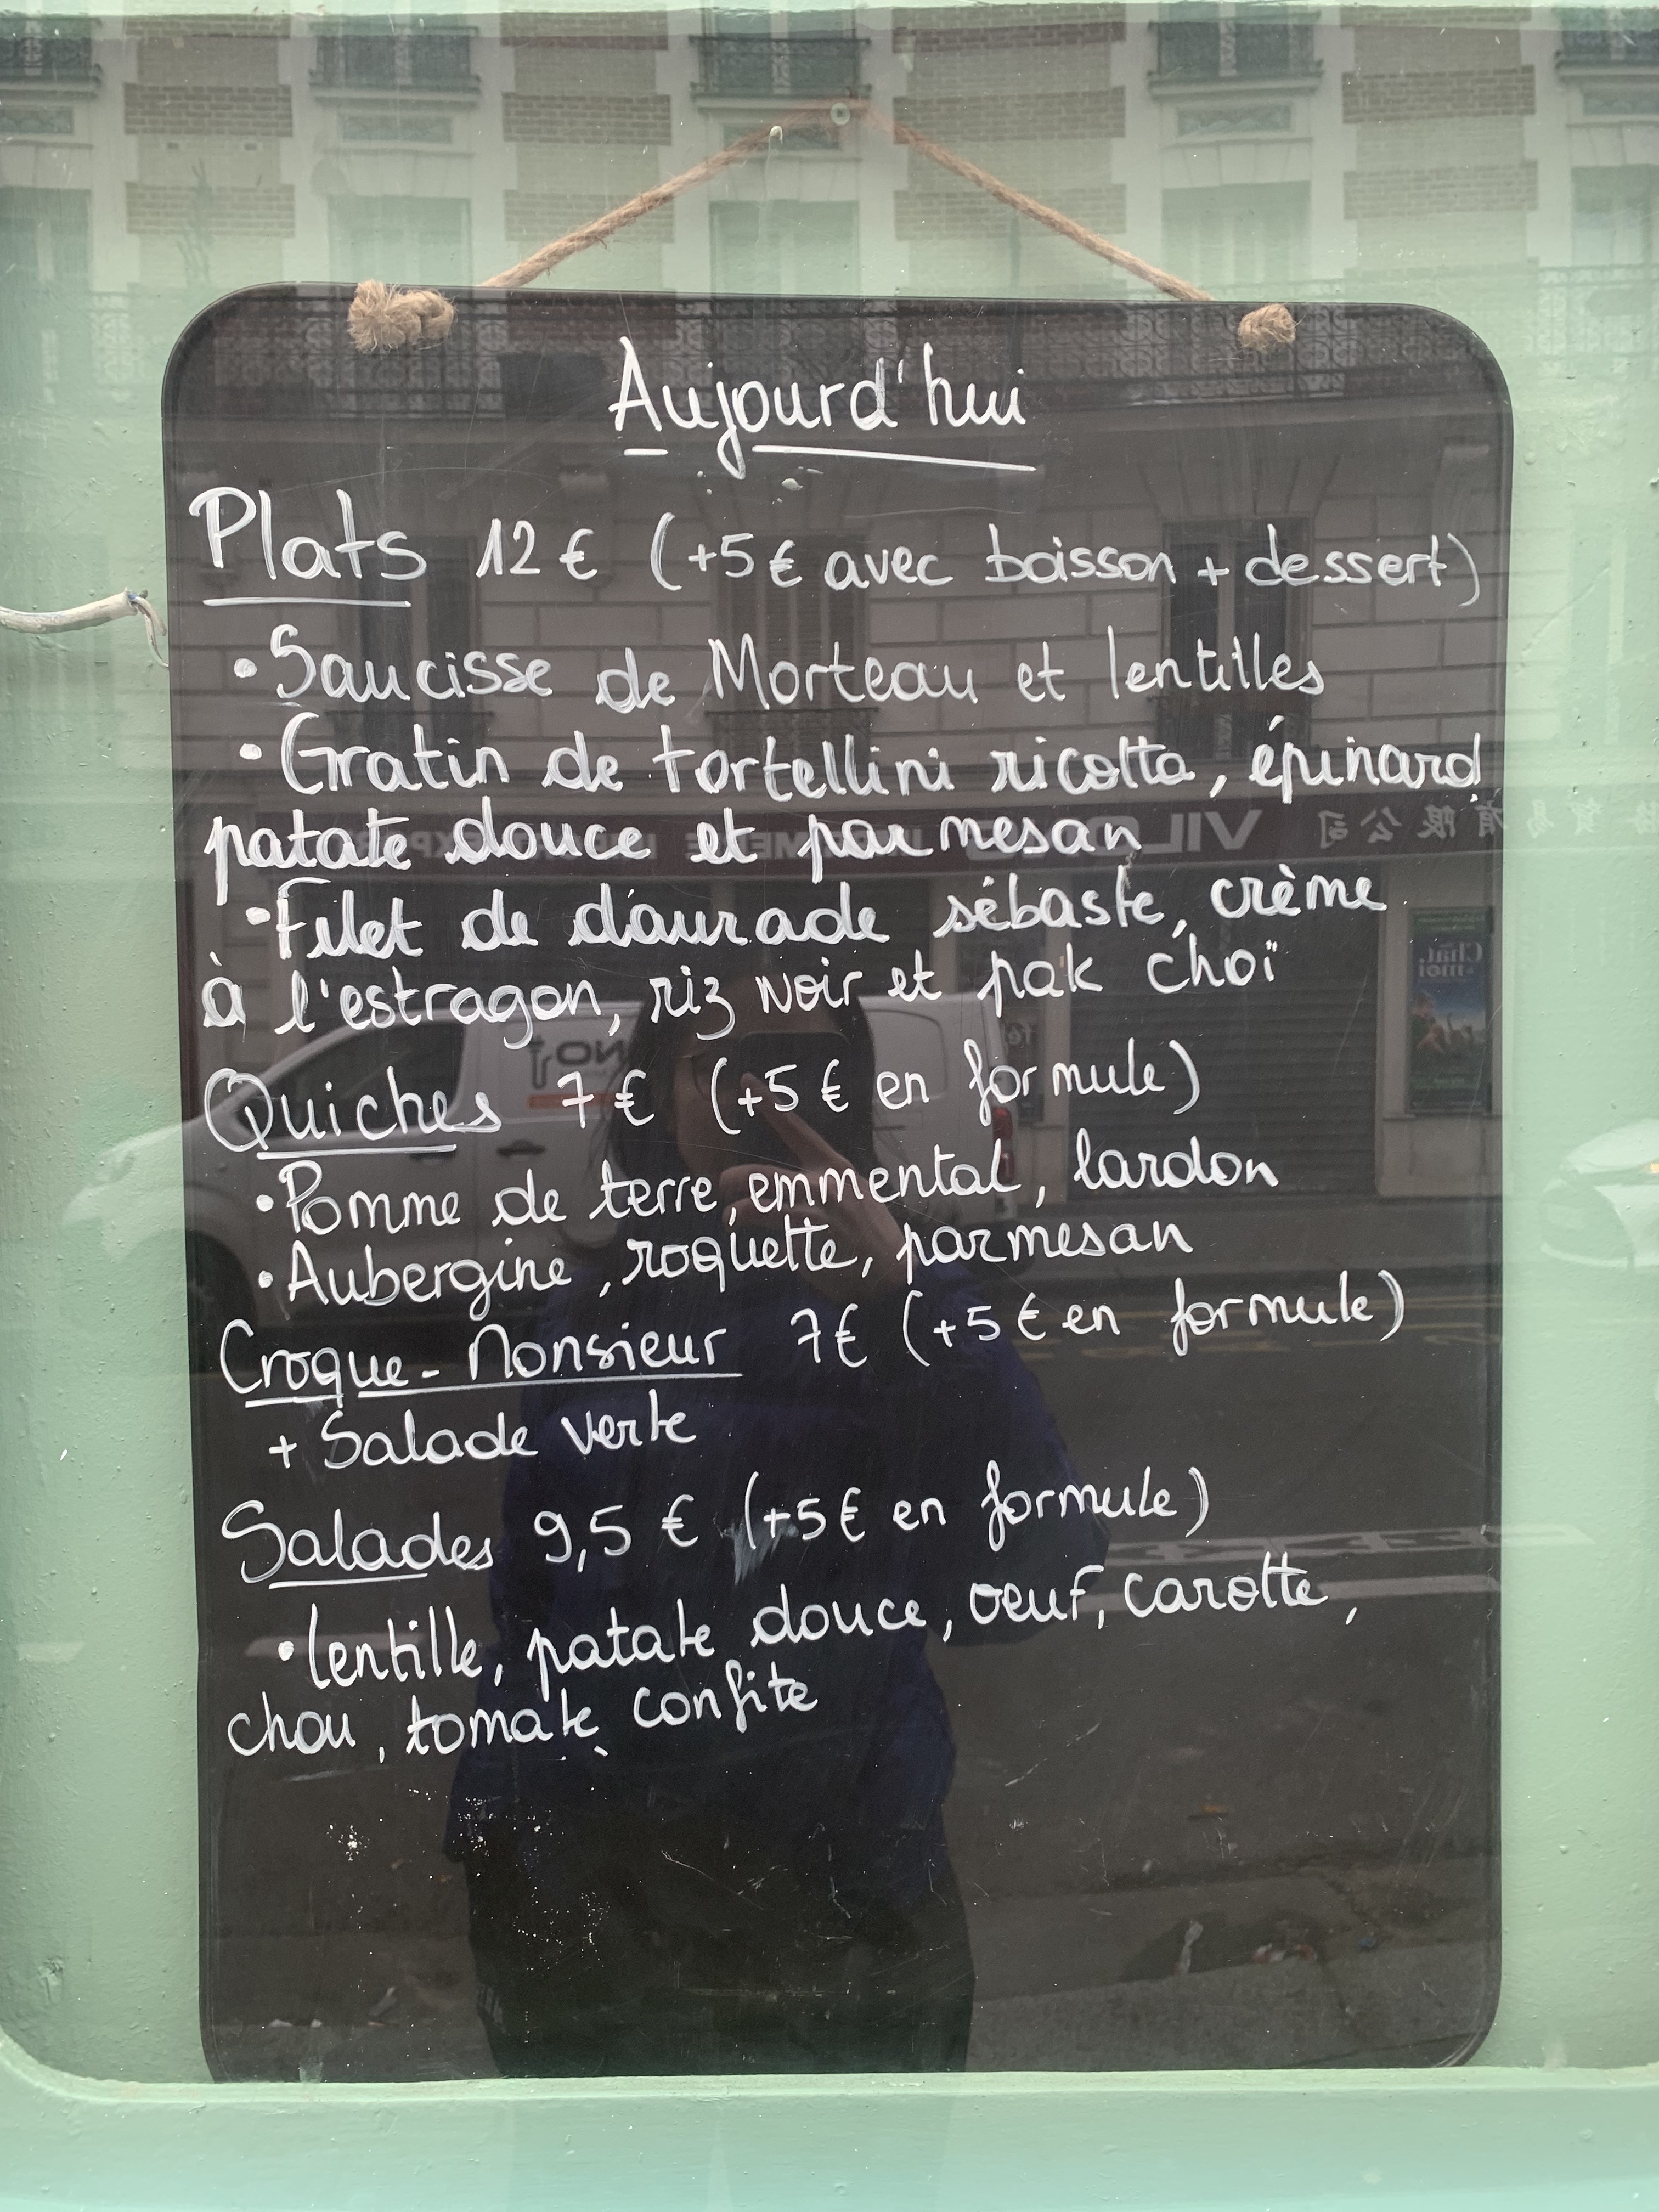 Aujourd'hui
Plats 12 € (+5 € avec boisson + dessert)
• Saucisse de Morteau et lentilles
• Gratin de tortellini ricotta, épinard,
patate douce et parmesan
• Filet de daurade sébaste, crème
à l'estragon, riz noir et pak choï
Quiches 7 € (+5 € en formule)
• Pomme de terre, emmental, lardon
• Aubergine, roquette, parmesan
Croque-Monsieur 7 € (+5 € en formule)
+ Salade verte
Salades 9,5 € (+5 € en formule)
• lentille, patate douce, oeuf, carotte,
chou, tomate confite